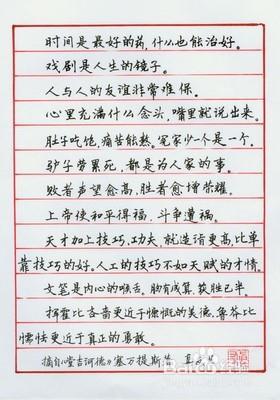 时间是最好的药,什么也能治好。
戏剧是人生的镜子。
人与人的友谊非常难保。
心里充满什么念头,嘴里就说出来。
肚子吃饱,痛苦能熬。冤家少一个是一个。
驴子劳累死,都是为人家的事。
败者声望愈高,胜者愈增荣耀。
上帝使和平得福,斗争遭祸。
天才加上技巧、功夫,就造诣更高,比单
靠技巧的好。人工的技巧不如天赋的才情。
文笔是内心的喉舌。胸有成算,获胜已半。
挥霍比吝啬更近于慷慨的美德,鲁莽比
懦怯更近于真正的勇敢。
摘自《堂吉诃德》塞万提斯